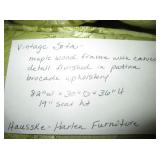 Vintage Sofa -
maple wood frame with carved
detail finished in patina
brocade upholstery
82"W x 30"D x 36"H
19" seat ht
Hausske-Harlen Furniture